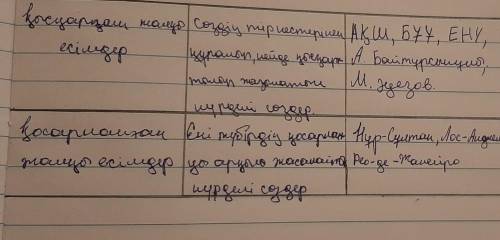 Қысқарған жалқы
есімдер
Сөздің тіркестерінен
құралып, кейде қысқар
тылып жазылатын
күрделі сөздер
АҚШ, БҰҰ, ЕНУ,
А. Байтұрсынұлы,
М. Әуезов.
Қосарланған
жалқы есімдер
Екі түбірдің қосарлан
уы арқылы жасалатын
күрделі сөздер
Нұр-Султан, Лос-Анджел
Рио-де-Жанейро